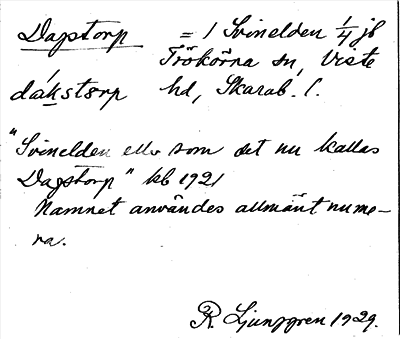 Dagstorp = 1 Svinelden 1/4 jb
Trökörna sn, Viste
dákstørp hd, Skarab. l.
"Svinelden eller som det nu kallas
Dagstorp" kb 1921
Namnet användes allmänt nume-
ra.
R. Ljunggren 1929.